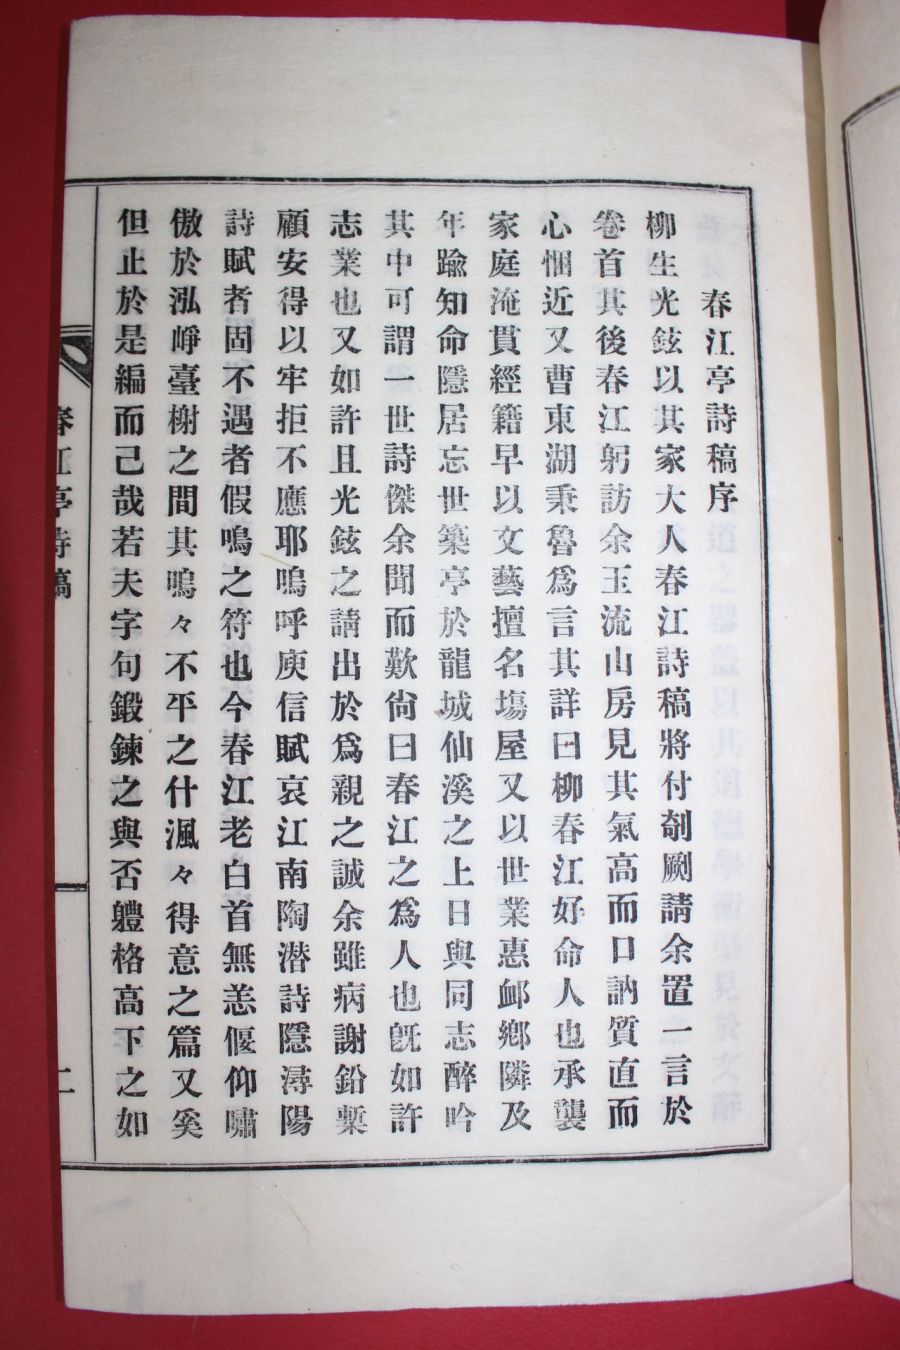 春江亭詩稿序
柳生光鉉以其家大人春江詩稿將付剞劂請余置一言於
卷首其後春江躬訪余玉流山房見其氣高而口訥質直而
心悃近又曹東湖秉魯爲言其詳曰柳春江好命人也承襲
家庭淹貫經籍早以文藝擅名塲屋又以世業惠䘏鄕隣及
年踰知命隱居忘世築亭於龍城仙溪之上日與同志醉吟
其中可謂一世詩傑余聞而歎尙曰春江之爲人也旣如許
志業也又如許且光鉉之請出於爲親之誠余雖病謝鉛槧
顧安得以牢拒不應耶嗚呼庾信賦哀江南陶潜詩隱潯陽
詩賦者固不遇者假鳴之符也今春江老白首無恙偃仰嘯
傲於泓崢臺榭之間其嗚々不平之什渢々得意之篇又奚
但止於是編而已哉若夫字句鍛鍊之與否軆格高下之如
春江亭詩稿
二